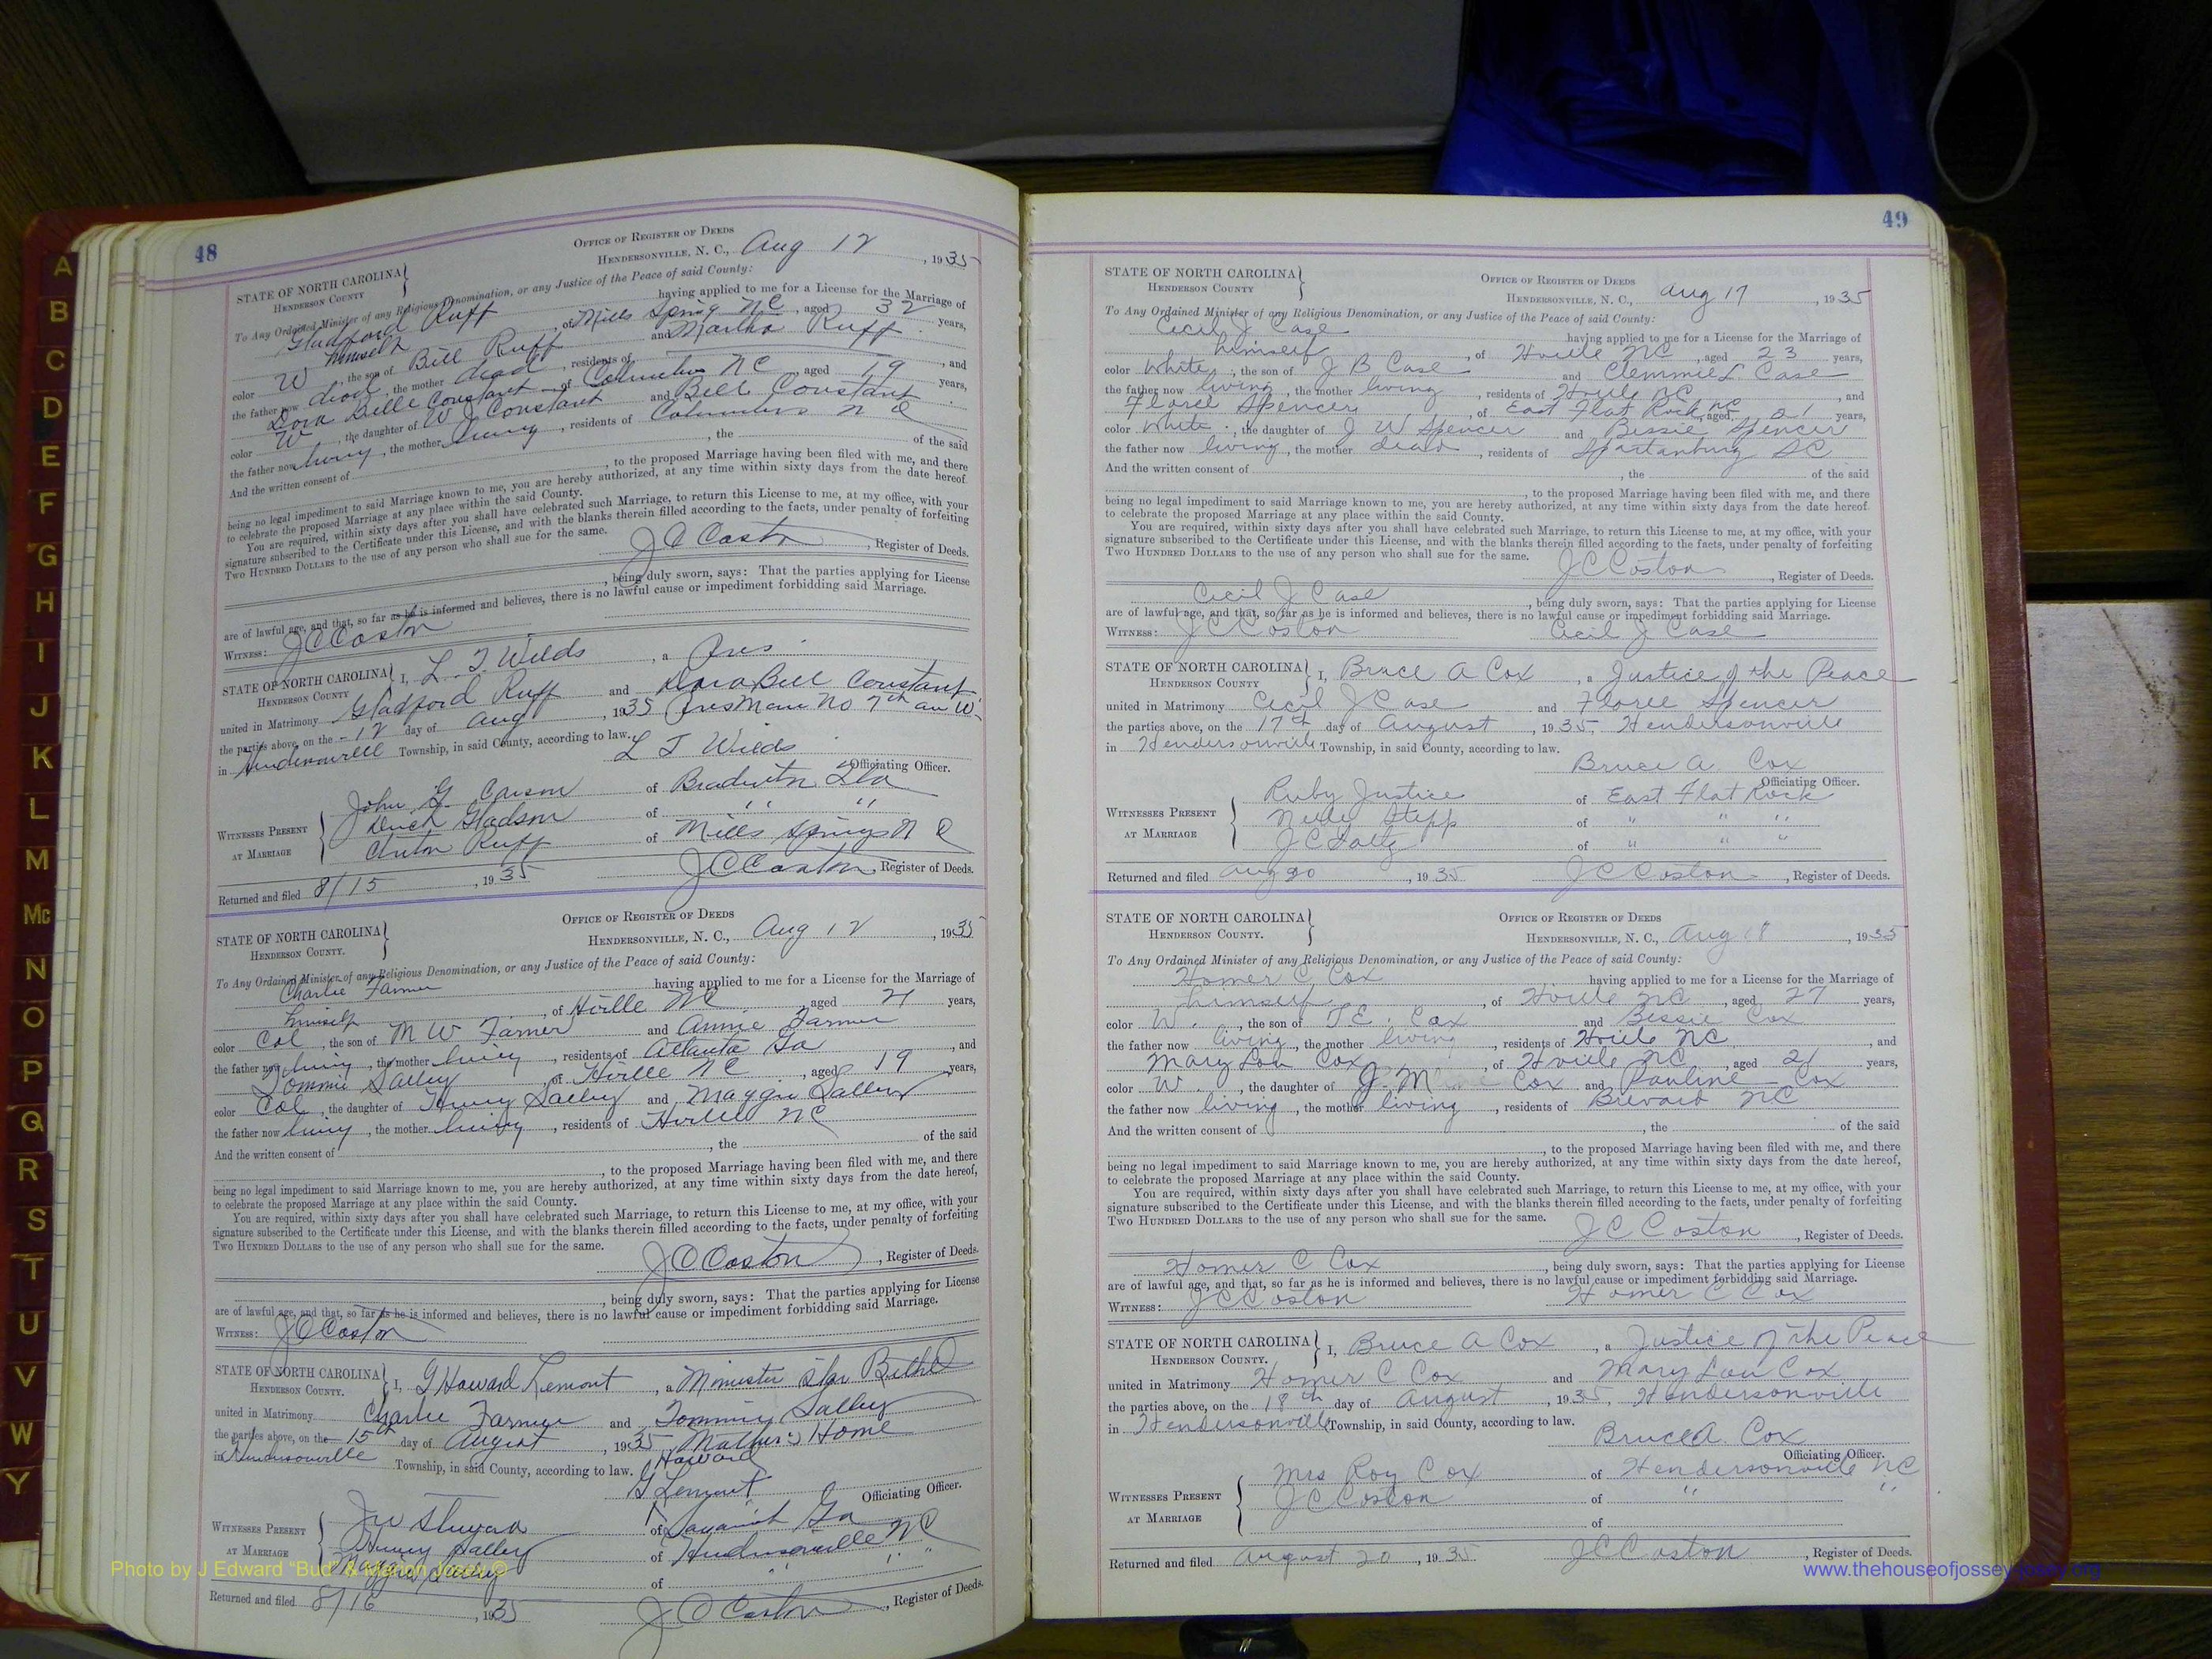 A
B
C
D
E
F
G
H
I
J
K
L
M
Mc
N
O
P
Q
R
S
T
U
V
W
Y
48
Office of Register of Deeds
STATE OF NORTH CAROLINA
Henderson County
Hendersonville, N. C., Aug 12, 1935
To Any Ordained Minister of any Religious Denomination, or any Justice of the Peace of said County:
Gladford Ruff having applied to me for a License for the Marriage of
himself, of Mills Spring NC, aged 32 years,
color W, the son of Bill Ruff and Martha Ruff
the father now dead, the mother dead, residents of , and
Dora Belle Constant of Columbus NC, aged 19 years,
color W, the daughter of W J Constant and Bell Constant
the father now living, the mother living, residents of Columbus N C
And the written consent of , the of the said
, to the proposed Marriage having been filed with me, and there
being no legal impediment to said Marriage known to me, you are hereby authorized, at any time within sixty days from the date hereof
to celebrate the proposed Marriage at any place within the said County.
You are required, within sixty days after you shall have celebrated such Marriage, to return this License to me, at my office, with your
signature subscribed to the Certificate under this License, and with the blanks therein filled according to the facts, under penalty of forfeiting
Two Hundred Dollars to the use of any person who shall sue for the same.
J C Coston, Register of Deeds.
, being duly sworn, says: That the parties applying for License
are of lawful age, and that, so far as he is informed and believes, there is no lawful cause or impediment forbidding said Marriage.
Witness: J C Coston
STATE OF NORTH CAROLINA
Henderson County
I, L T Wilds, a Pres
united in Matrimony Gladford Ruff and Dora Bell Constant
the parties above, on the 12 day of Aug, 1935 Pres Manse No 7th av W
in Hendersonville Township, in said County, according to law.
L T Wilds
Officiating Officer.
Witnesses Present at Marriage
John G. Carson of Bradenton Fla
Gladson of " "
Clinton Ruff of Mills Springs N C
Returned and filed 8/15, 1935 J C Coston Register of Deeds.
STATE OF NORTH CAROLINA
Henderson County.
Office of Register of Deeds
Hendersonville, N. C., Aug 12, 1935
To Any Ordained Minister of any Religious Denomination, or any Justice of the Peace of said County:
Charlie Farmer having applied to me for a License for the Marriage of
himself, of Hville NC, aged 21 years,
color Col, the son of M W Farmer and Annie Farmer
the father now living, the mother living, residents of Atlanta Ga, and
Tommie Salley, of Hville NC, aged 19 years,
color Col, the daughter of Henry Salley and Maggie Salley
the father now living, the mother living, residents of Hville NC
And the written consent of , the of the said
, to the proposed Marriage having been filed with me, and there
being no legal impediment to said Marriage known to me, you are hereby authorized, at any time within sixty days from the date hereof,
to celebrate the proposed Marriage at any place within the said County.
You are required, within sixty days after you shall have celebrated such Marriage, to return this License to me, at my office, with your
signature subscribed to the Certificate under this License, and with the blanks therein filled according to the facts, under penalty of forfeiting
Two Hundred Dollars to the use of any person who shall sue for the same.
J C Coston, Register of Deeds.
, being duly sworn, says: That the parties applying for License
are of lawful age, and that, so far as he is informed and believes, there is no lawful cause or impediment forbidding said Marriage.
Witness: J C Coston
STATE OF NORTH CAROLINA
Henderson County.
I, G Howard Lemont, a Minister Star Bethel
united in Matrimony Charlie Farmer and Tommie Salley
the parties above, on the 15th day of August, 1935 Mother's Home
in Hendersonville Township, in said County, according to law.
G Howard Lemont
Officiating Officer.
Witnesses Present at Marriage
of Ga
Henry Salley of Hendersonville NC
Maggie Salley of " "
Returned and filed 8/16, 1935 J C Coston, Register of Deeds.
Photo by J Edward "Bud" & Marion Josey ©
49
STATE OF NORTH CAROLINA
Henderson County
Office of Register of Deeds
Hendersonville, N. C., Aug 17, 1935
To Any Ordained Minister of any Religious Denomination, or any Justice of the Peace of said County:
Cecil J Case having applied to me for a License for the Marriage of
himself, of Hville NC, aged 23 years,
color White, the son of J B Case and Clemmie L. Case
the father now living, the mother living, residents of Hville NC, and
Floree Spencer, of East Flat Rock NC, aged 21 years,
color White, the daughter of J W Spencer and Bessie Spencer
the father now living, the mother dead, residents of Spartanburg SC
And the written consent of , the of the said
, to the proposed Marriage having been filed with me, and there
being no legal impediment to said Marriage known to me, you are hereby authorized, at any time within sixty days from the date hereof
to celebrate the proposed Marriage at any place within the said County.
You are required, within sixty days after you shall have celebrated such Marriage, to return this License to me, at my office, with your
signature subscribed to the Certificate under this License, and with the blanks therein filled according to the facts, under penalty of forfeiting
Two Hundred Dollars to the use of any person who shall sue for the same.
J C Coston, Register of Deeds.
Cecil J Case, being duly sworn, says: That the parties applying for License
are of lawful age, and that, so far as he is informed and believes, there is no lawful cause or impediment forbidding said Marriage.
Witness: J C Coston Cecil J Case
STATE OF NORTH CAROLINA
Henderson County
I, Bruce A Cox, a Justice of the Peace
united in Matrimony Cecil J Case and Floree Spencer
the parties above, on the 17th day of August, 1935, Hendersonville
in Hendersonville Township, in said County, according to law.
Bruce A. Cox
Officiating Officer.
Witnesses Present at Marriage
Ruby Justice of East Flat Rock
Nelle Stepp of " " "
J C Foltz of " " "
Returned and filed Aug 20, 1935 J C Coston, Register of Deeds.
STATE OF NORTH CAROLINA
Henderson County.
Office of Register of Deeds
Hendersonville, N. C., Aug 18, 1935
To Any Ordained Minister of any Religious Denomination, or any Justice of the Peace of said County:
Homer C Cox having applied to me for a License for the Marriage of
himself, of Hville NC, aged 27 years,
color W., the son of T E. Cox and Bessie Cox
the father now living, the mother living, residents of Hville NC, and
Mary Lou Cox, of Hville NC, aged 21 years,
color W., the daughter of J. M Cox and Pauline Cox
the father now living, the mother living, residents of Brevard NC
And the written consent of , the of the said
, to the proposed Marriage having been filed with me, and there
being no legal impediment to said Marriage known to me, you are hereby authorized, at any time within sixty days from the date hereof,
to celebrate the proposed Marriage at any place within the said County.
You are required, within sixty days after you shall have celebrated such Marriage, to return this License to me, at my office, with your
signature subscribed to the Certificate under this License, and with the blanks therein filled according to the facts, under penalty of forfeiting
Two Hundred Dollars to the use of any person who shall sue for the same.
J C Coston, Register of Deeds.
Homer C Cox, being duly sworn, says: That the parties applying for License
are of lawful age, and that, so far as he is informed and believes, there is no lawful cause or impediment forbidding said Marriage.
Witness: J C Coston Homer C Cox
STATE OF NORTH CAROLINA
Henderson County.
I, Bruce A Cox, a Justice of the Peace
united in Matrimony Homer C Cox and Mary Lou Cox
the parties above, on the 18th day of August, 1935, Hendersonville
in Hendersonville Township, in said County, according to law.
Bruce A. Cox
Officiating Officer.
Witnesses Present at Marriage
Mrs Roy Cox of Hendersonville NC
J C Coston of " "
of
Returned and filed August 20, 1935 J C Coston, Register of Deeds.
www.thehouseofjossey-josey.org